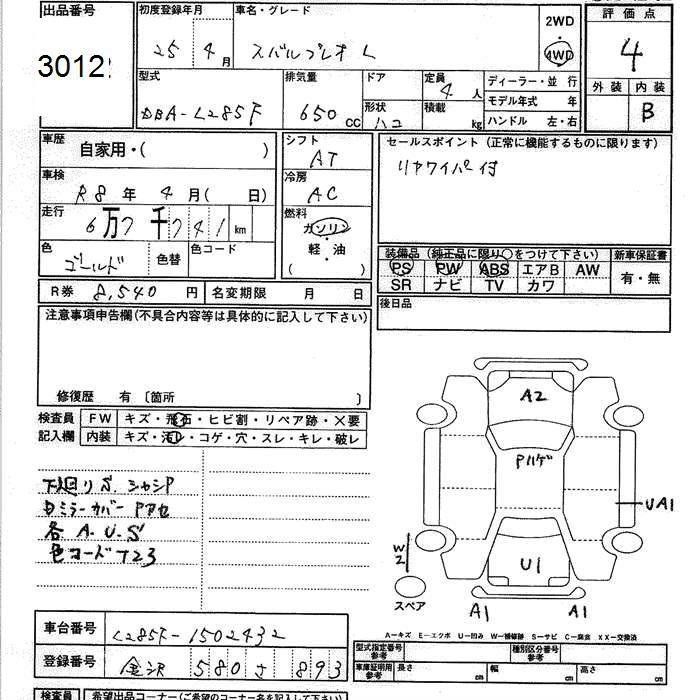 出品番号
3012
初度登録年月
25 4月
車名・グレード
スバルプレオ L
2WD
・
4WD
評価点
4
外装 内装
B
型式
DBA-L285F
排気量
650 cc
ドア
形状
ハコ
定員
4人
積載
kg
ディーラー・並行
モデル年式 年
ハンドル 左・右
車歴
自家用・( )
車検
R8年 4月( 日)
走行
6万7千741km
色
ゴールド
色替
色コード
シフト
AT
冷房
AC
燃料
ガソリン
軽・油
( )
セールスポイント(正常に機能するものに限ります)
リヤワイパー付
装備品(純正品に限り○をつけて下さい)
PS PW ABS エアB AW
SR ナビ TV カワ
新車保証書
有・無
後日品
R券 8,540円
名変期限 月 日
注意事項申告欄(不具合内容等は具体的に記入して下さい)
修復歴 有〔箇所 〕
検査員
記入欄
FW キズ・飛石・ヒビ割・リペア跡・×要
内装 キズ・汚レ・コゲ・穴・スレ・キレ・破レ
下廻リS シャシP
Dミラーカバー Pアセ
各 A.U.S
色コードT23
A2
Pハゲ
UA1
U1
W2
スペア
A1
A1
A-キズ E-エクボ U-凹み W-補修跡 S-サビ C-腐食 XX-交換済
車台番号 L285F-1502432
登録番号 金沢 580 さ 893
型式指定番号
参考
種別区分番号
参考
車庫証明用
参考
長さ cm
幅 cm
高さ cm
検査員
希望出品コーナー(ご希望のコーナー名を記入して下さい)